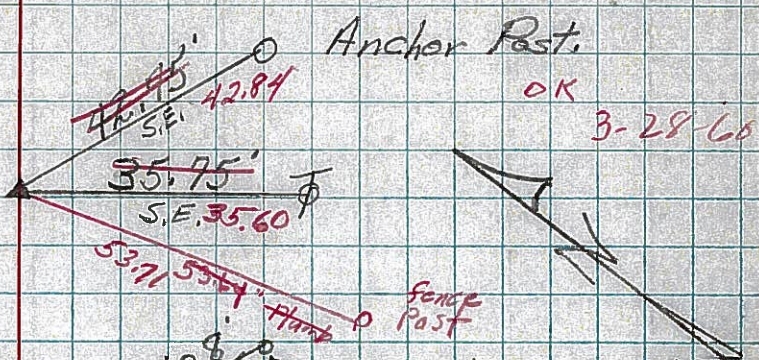 Anchor Post.
OK
3-28-60
42.45'
42.84
S.E.
35.75'
S.E. 35.60
53.71 53.64' Plumb
fence
Post
8'